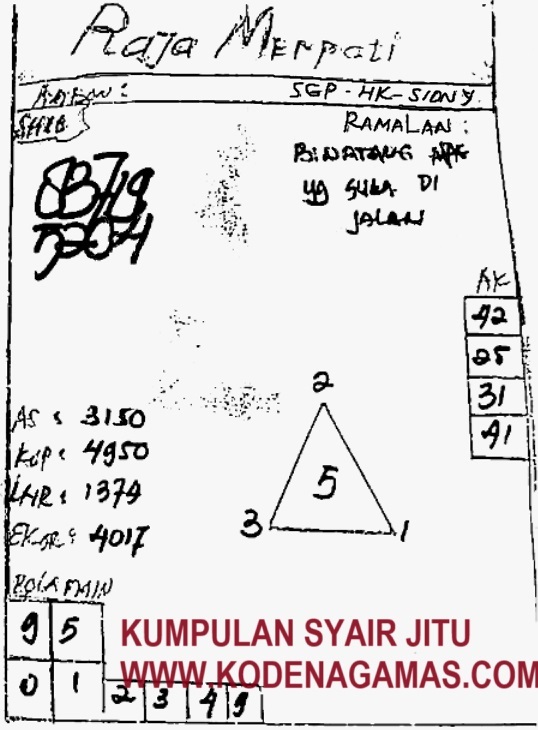 Raja Merpati
SGP-HK-SIDNY
RAMALAN:
BINATANG APA
yg SUKA DI
JALAN
8319
5204
AK
42
25
31
41
AS : 3150
KOP : 4950
1379
EKOR : 4017
2
5
3 1
POLA MAIN
9 5
0 1 2 3 4 9
KUMPULAN SYAIR JITU
WWW.KODENAGAMAS.COM